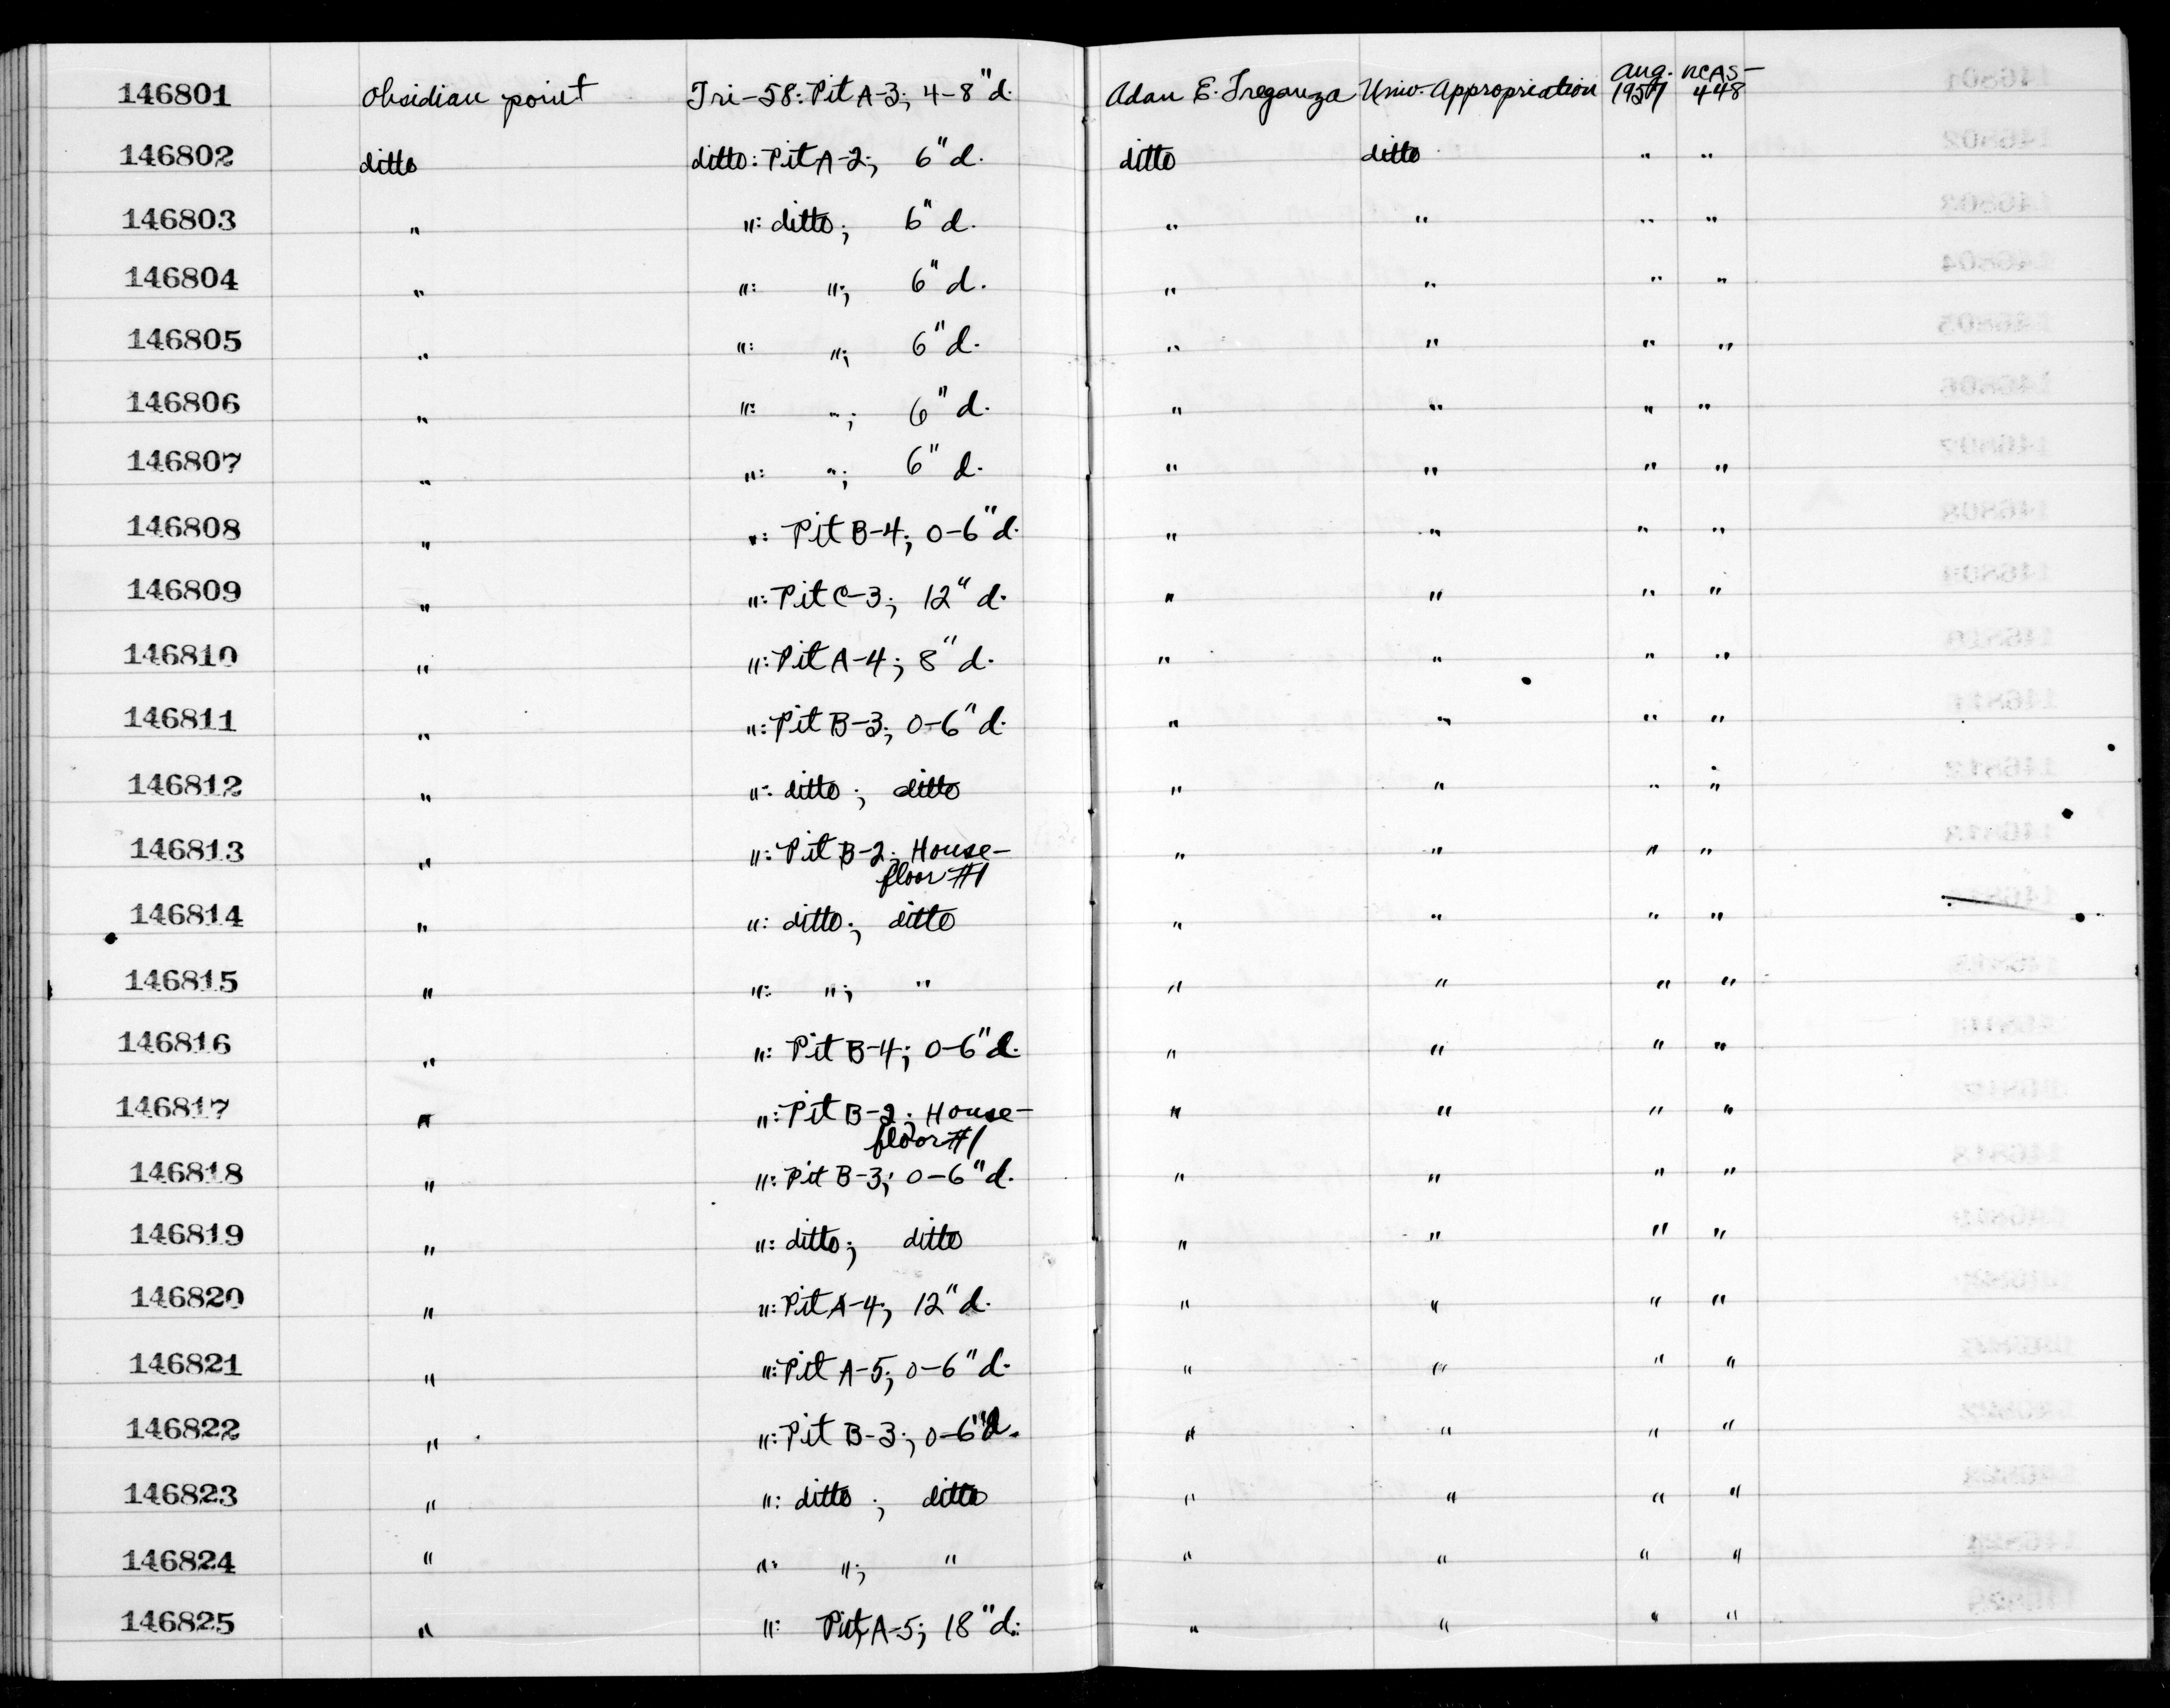 146801 Obsidian point Tri-58: Pit A-3; 4-8" d. Adan E. Treganza Univ. Appropriation Aug. 1951 UCAS-448
146802 ditto ditto: Pit A-2; 6" d. ditto ditto " "
146803 " ": ditto; 6" d. " " " "
146804 " ": "; 6" d. " " " "
146805 " ": "; 6" d. " " " "
146806 " ": "; 6" d. " " " "
146807 " ": "; 6" d. " " " "
146808 " ": Pit B-4; 0-6" d. " " " "
146809 " ": Pit C-3; 12" d. " " " "
146810 " ": Pit A-4; 8" d. " " " "
146811 " ": Pit B-3; 0-6" d. " " " "
146812 " ": ditto; ditto " " " "
146813 " ": Pit B-2; House-floor #1 " " " "
146814 " ": ditto; ditto " " " "
146815 " ": "; " " " " "
146816 " ": Pit B-4; 0-6" d. " " " "
146817 " ": Pit B-2; House-floor #1 " " " "
146818 " ": Pit B-3; 0-6" d. " " " "
146819 " ": ditto; ditto " " " "
146820 " ": Pit A-4; 12" d. " " " "
146821 " ": Pit A-5; 0-6" d. " " " "
146822 " ": Pit B-3; 0-6" d. " " " "
146823 " ": ditto; ditto " " " "
146824 " ": "; " " " " "
146825 " ": Pit A-5; 18" d. " " " "